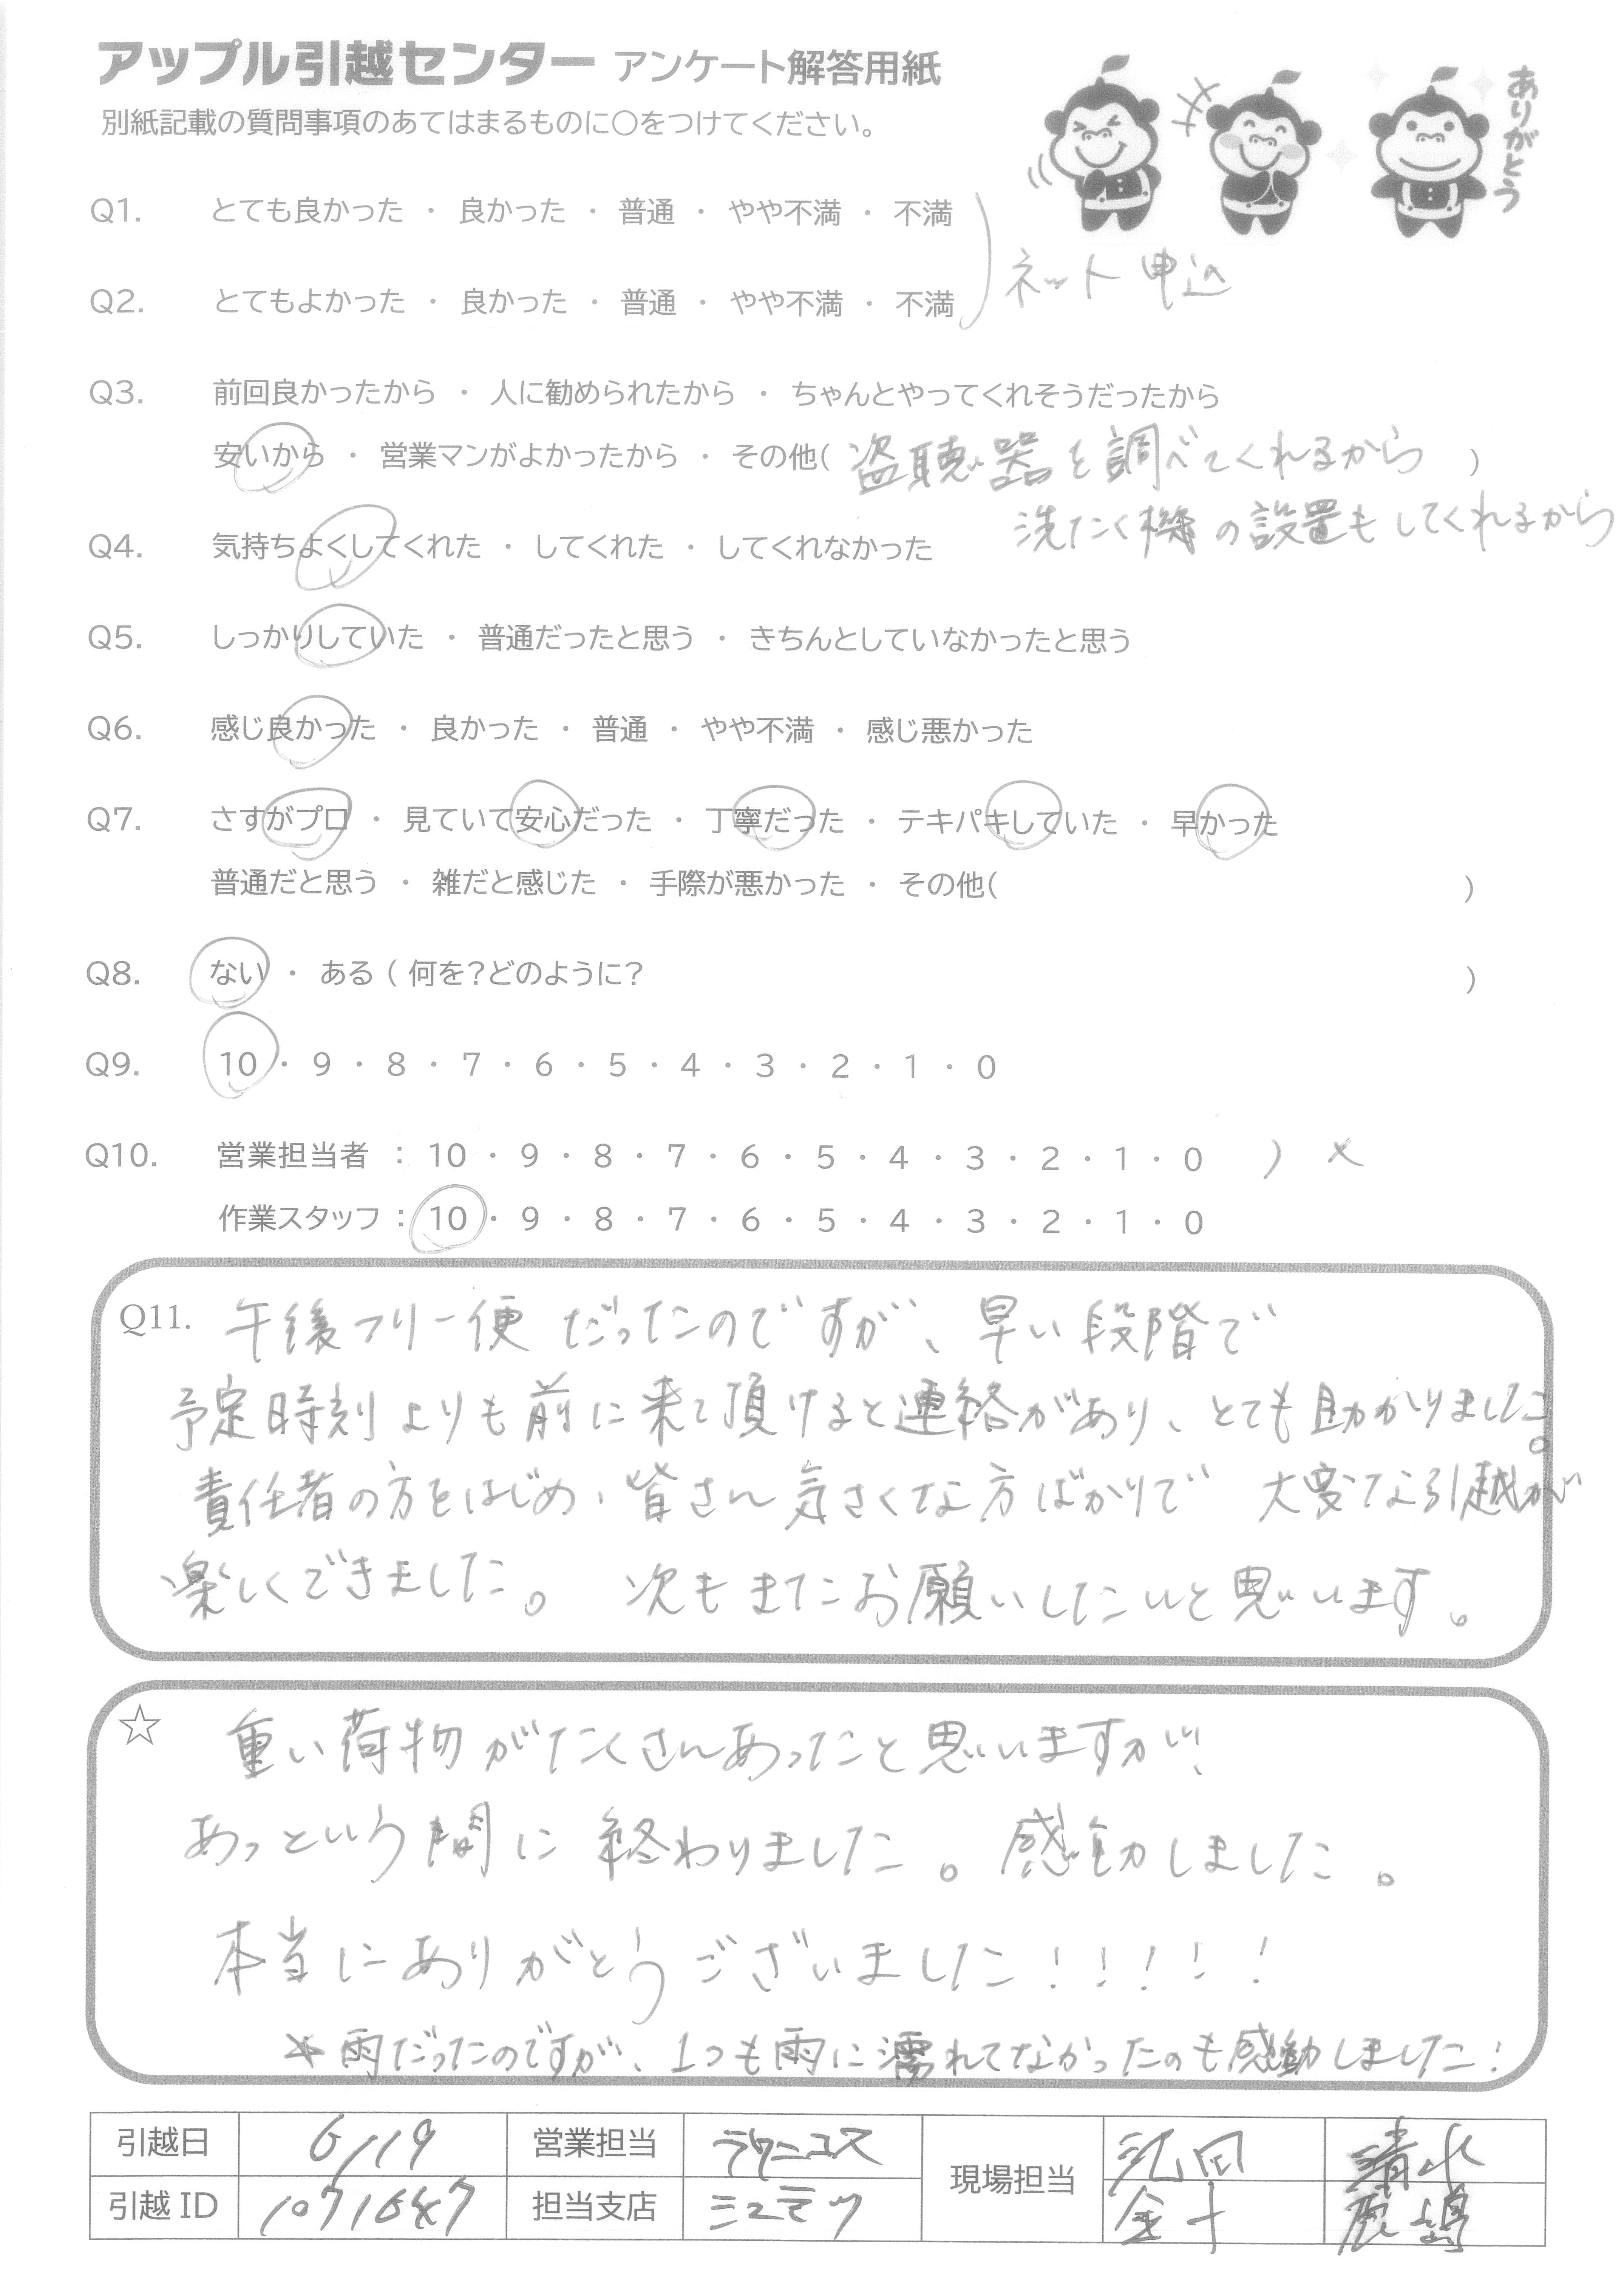 アップル引越センター アンケート解答用紙
別紙記載の質問事項のあてはまるものに○をつけてください。
ありがとう
Q1. とても良かった ・ 良かった ・ 普通 ・ やや不満 ・ 不満
Q2. とてもよかった ・ 良かった ・ 普通 ・ やや不満 ・ 不満
ネット申込
Q3. 前回良かったから ・ 人に勧められたから ・ ちゃんとやってくれそうだったから
安いから ・ 営業マンがよかったから ・ その他( 盗聴器を調べてくれるから )
洗たく機の設置もしてくれるから
Q4. 気持ちよくしてくれた ・ してくれた ・ してくれなかった
Q5. しっかりしていた ・ 普通だったと思う ・ きちんとしていなかったと思う
Q6. 感じ良かった ・ 良かった ・ 普通 ・ やや不満 ・ 感じ悪かった
Q7. さすがプロ ・ 見ていて安心だった ・ 丁寧だった ・ テキパキしていた ・ 早かった
普通だと思う ・ 雑だと感じた ・ 手際が悪かった ・ その他( )
Q8. ない ・ ある ( 何を?どのように? )
Q9. 10 ・ 9 ・ 8 ・ 7 ・ 6 ・ 5 ・ 4 ・ 3 ・ 2 ・ 1 ・ 0
Q10. 営業担当者 : 10 ・ 9 ・ 8 ・ 7 ・ 6 ・ 5 ・ 4 ・ 3 ・ 2 ・ 1 ・ 0 ) ×
作業スタッフ : 10 ・ 9 ・ 8 ・ 7 ・ 6 ・ 5 ・ 4 ・ 3 ・ 2 ・ 1 ・ 0
Q11. 午後フリー便だったのですが、早い段階で
予定時刻よりも前に来て頂けると連絡があり、とても助かりました。
責任者の方をはじめ、皆さん気さくな方ばかりで 大変な引越が
楽しくできました。 次もまたお願いしたいと思います。
☆ 重い荷物がたくさんあったと思いますが、
あっという間に終わりました。感動しました。
本当にありがとうございました!!!!!
*雨だったのですが、1つも雨に濡れてなかったのも感動しました!
引越日 6/19 営業担当 ラクニコス 現場担当 清水
引越ID 1071647 担当支店 鹿嶋